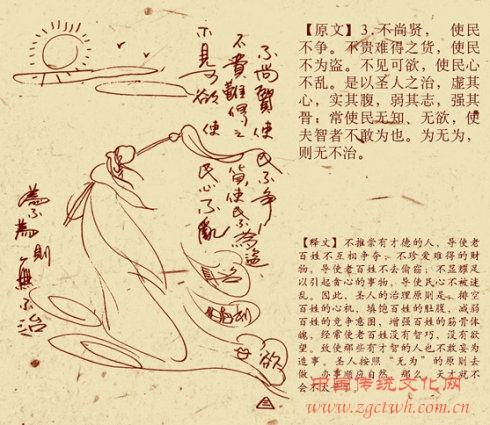 不尚賢使
民不争
不貴難得之
貨使民不為盗
不見可欲使
民心不亂
則
無不治
【原文】3.不尚贤， 使民
不争。不贵难得之货，使民
不为盗。不见可欲，使民心
不乱。是以圣人之治，虚其
心，实其腹，弱其志，强其
骨；常使民无知、无欲，使
夫智者不敢为也。为无为，
则无不治。
【释文】 不推崇有才德的人，导使老
百姓不互相争夺；不珍爱难得的财
物，导使老百姓不去偷窃；不显耀足
以引起贪心的事物，导使民心不被迷
乱。因此，圣人的治理原则是：排空
百姓的心机，填饱百姓的肚腹，减弱
百姓的竞争意图，增强百姓的筋骨体
魄，经常使老百姓没有智巧，没有欲
望。致使那些有才智的人也不敢妄为
造事。圣人按照“无为”的原则去
做，办事顺应自然，那么，天才就不
会不太
中国传统文化网
www.zgctwh.com.cn